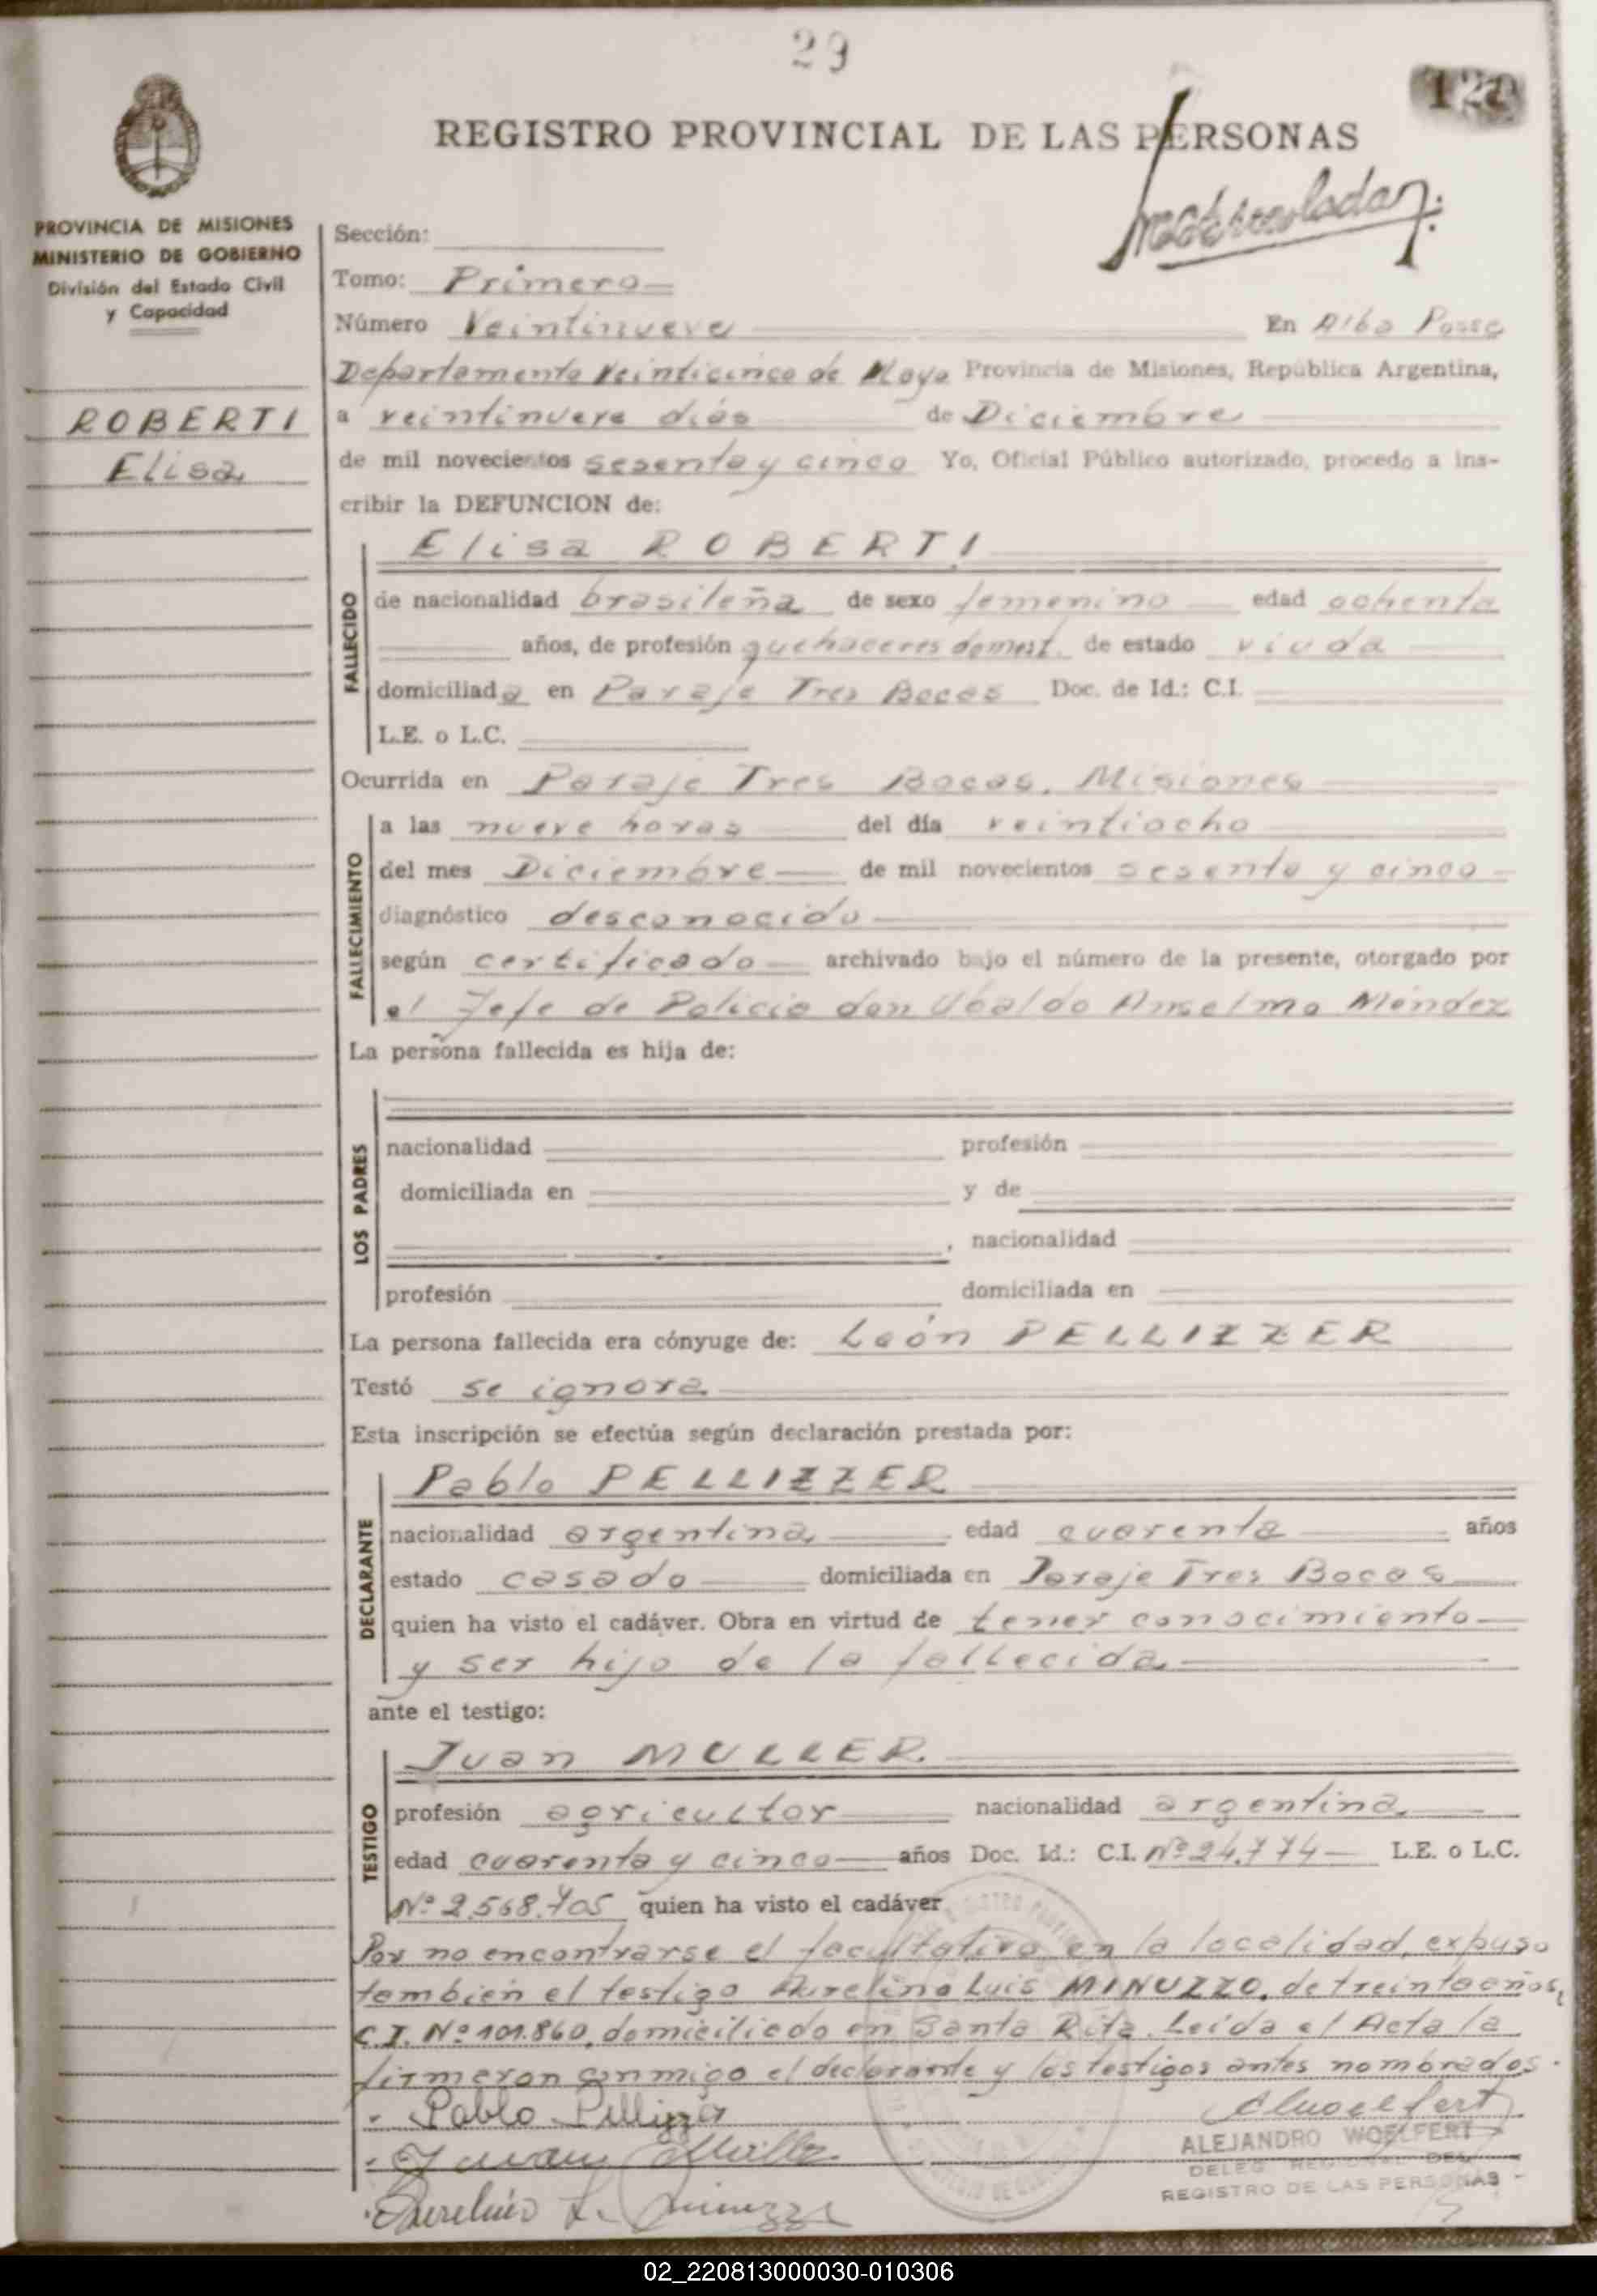 29
REGISTRO PROVINCIAL DE LAS PERSONAS
PROVINCIA DE MISIONES
MINISTERIO DE GOBIERNO
División del Estado Civil
y Capacidad
ROBERTI
Elisa
Sección:
Tomo: Primero
Número Veintinueve En Alba Posse
Departamento Veinticinco de Mayo Provincia de Misiones, República Argentina,
a veintinueve días de Diciembre
de mil novecientos sesenta y cinco Yo, Oficial Público autorizado, procedo a ins-
cribir la DEFUNCION de:
FALLECIDO
Elisa ROBERTI
de nacionalidad brasileña de sexo femenino edad ochenta
años, de profesión quehaceres domest. de estado viuda
domiciliada en Paraje Tres Bocas Doc. de Id.: C.I.
L.E. o L.C.
Ocurrida en Paraje Tres Bocas, Misiones
FALLECIMIENTO
a las nueve horas del día veintiocho
del mes Diciembre de mil novecientos sesenta y cinco
diagnóstico desconocido
según certificado archivado bajo el número de la presente, otorgado por
el Jefe de Policia don Ubaldo Anselmo Méndez
La persona fallecida es hija de:
LOS PADRES
nacionalidad profesión
domiciliada en y de
, nacionalidad
profesión domiciliada en
La persona fallecida era cónyuge de: León PELLIZZER
Testó se ignora
Esta inscripción se efectúa según declaración prestada por:
DECLARANTE
Pablo PELLIZZER
nacionalidad argentina edad cuarenta años
estado casado domiciliada en Paraje Tres Bocas
quien ha visto el cadáver. Obra en virtud de tener conocimiento
y ser hijo de la fallecida
ante el testigo:
TESTIGO
Juan MULLER.
profesión agricultor nacionalidad argentina
edad cuarenta y cinco años Doc. Id.: C.I. Nº 24.774 L.E. o L.C.
Nº 2.568.705 quien ha visto el cadáver
Por no encontrarse el facultativo en la localidad, expuso
tambien el testigo Aurelino Luis MINUZZO, de treinta años,
C.I. Nº 101.860, domiciliado en Santa Rita. Leída el Acta la
firmaron conmigo el declarante y los testigos antes nombrados.
Pablo Pellizzer
Juan Muller
Aurelino L. Minuzzo
ALEJANDRO WOELFERT
REGISTRO DE LAS PERSONAS
02_220813000030-010306